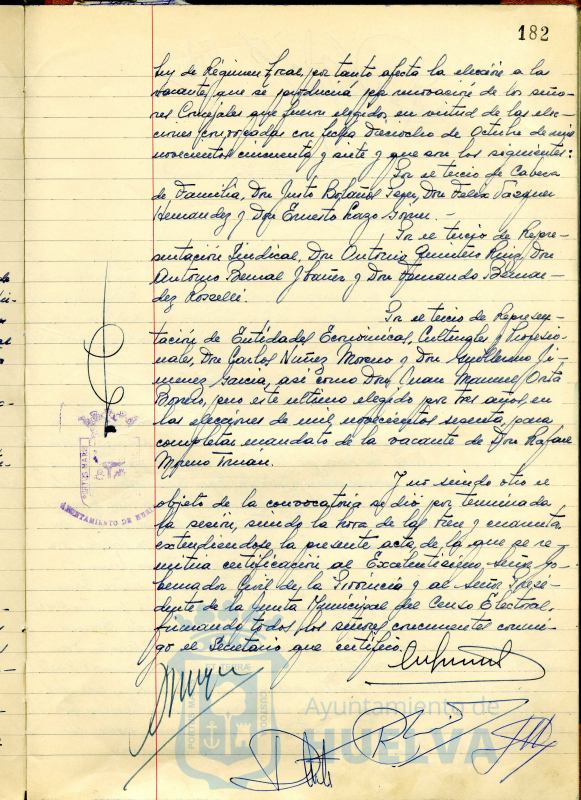 182
Ley de Régimen Local, por tanto afecta la elección a las
vacantes que se producirá por renovación de los seño-
res Concejales que fueron elegidos, en virtud de las elec-
ciones convocadas con fecha Dieciocho de Octubre de mil
novecientos cincuenta y siete y que son los siguientes:
Por el tercio de Cabeza
de Familia, Don Justo Bolaños Don Felix Vazquez
Hernandez y Don Ernesto Lazo
Por el tercio de Repre-
sentación Sindical, Don Antonio Quintero Ruiz, Don
Antonio Bernal Ibañez y Don Fernando Bernar-
dez Rosselli.
Por el tercio de Represen-
tación de Entidades Económicas, Culturales y Profesio-
nales, Don Carlos Núñez Moreno y Don Guillermo Ji-
menez Garcia, asi como Don Juan Manuel Orta
pero este ultimo elegido por tres años, en
las elecciones de mil novecientos sesenta, para
completar mandato de la vacante de Don Rafael
Moreno
Y no siendo otro el
objeto de la convocatoria se dió por terminada
la sesión, siendo la hora de las trece y cuarenta
extendiendose la presente acta de la que se re-
mitirá certificación al Excelentisimo Señor Go-
bernador Civil de la Provincia y al Señor Presi-
dente de la Junta Municipal del Censo Electoral,
firmando todos los señores concurrentes conmi-
go el Secretario que certifico.
AYUNTAMIENTO DE
Ayuntamiento de
HUELVA